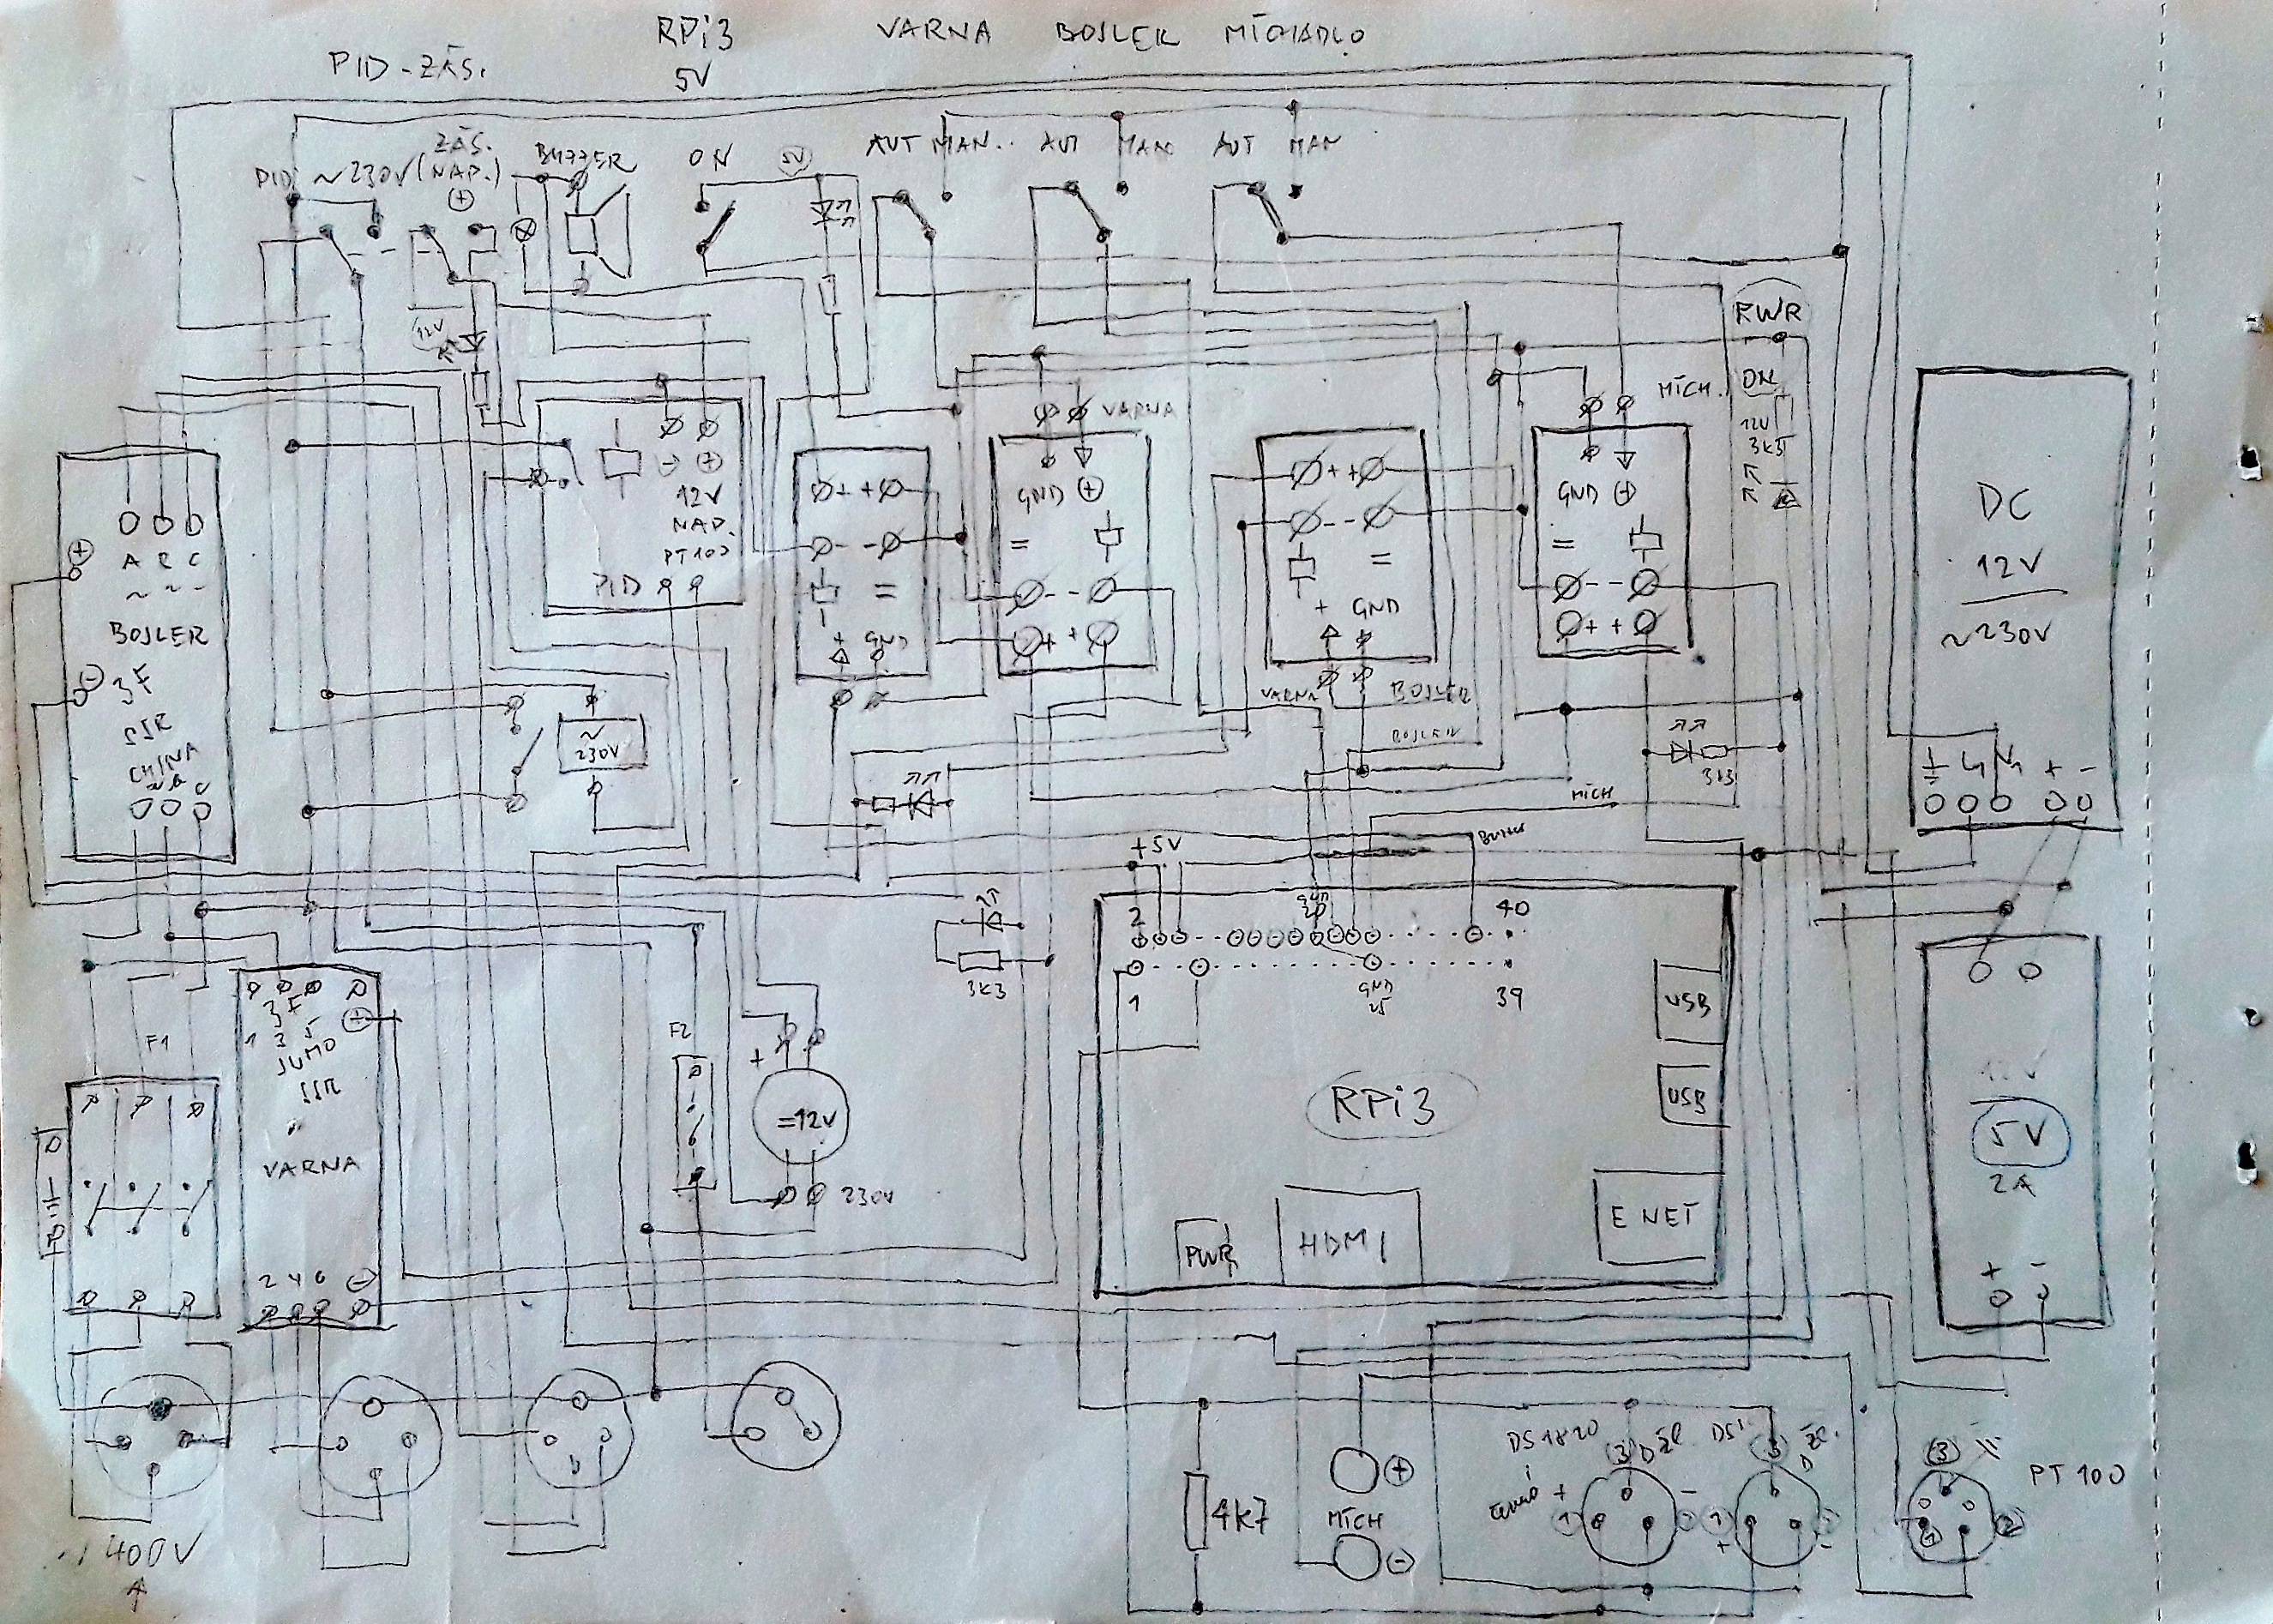 RPi3
5V
VARNA BOJLER MÍCHADLO
PID-ZÁS.
PID ~230V
ZÁS.
(NAP.)
+
BUZZER
ON
5V
AUT MAN.
AUT MAN
AUT MAN
12V
PWR
ON
12V
3K3
MÍCH.
VARNA
- +
12V
NAP.
PT100
PID
+ +
- -
=
+ GND
GND +
=
- -
+ +
+ +
- -
=
+ GND
GND +
=
- -
+ +
A B C
~ ~ ~
BOJLER
3F
SSR
CHINA
+
-
~
230V
VARNA
BOJLER
BOJLER
MÍCH
3K3
DC
12V
~230V
L N + -
+5V
Buzzer
2
GND
20
40
1
GND
25
39
3K3
USB
USB
RPi3
PWR
HDMI
E NET
5V
2A
+ -
F1
3F
1 3 5
JUMO
SSR
VARNA
+
2 4 6 -
F2
+
=12V
230V
400V
4K7
+
MÍCH
-
DS1820
3
+
1
-
3
1
+
-
3
1
2
PT100